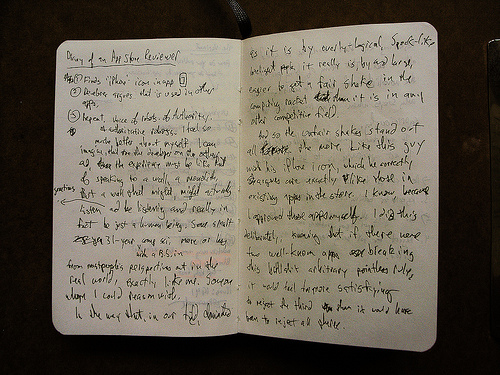 Diary of an App Store Reviewer
① Finds "iPhone" icon in app
② Developer argues that is used in other
apps.
③ Repeat, voice of robots of Authority,
of authoritative robots. I feel so
much better about myself. I can
imagine, that for the developer on the other
end, the experience must be like
of speaking to a wall, a
But a wall that might might actually
listen and be listening and really in
fact be just a human being. Some small
31-year, more or less
with a B.S. in
from most people's perspectives not in the
real world, exactly like me. Someone
whom I could reason with.
In the way that, in our field, dominated
as it is by overly-logical, Spock-like
intelligent people, it really is, by and large,
easier to get a fair shake in the
computing racket than it is in any
other competitive field.
And so the unfair shakes stand out
all the more. Like this guy
with his iPhone icon, which he correctly
argues are exactly like those in
existing apps in the store. I know, because
I approved those apps myself. I did this
deliberately, knowing that if there were
two well-known apps breaking
this bullshit arbitrary pointless rule,
it would feel far more satisfying
to reject the third than it would have
been to reject all three.